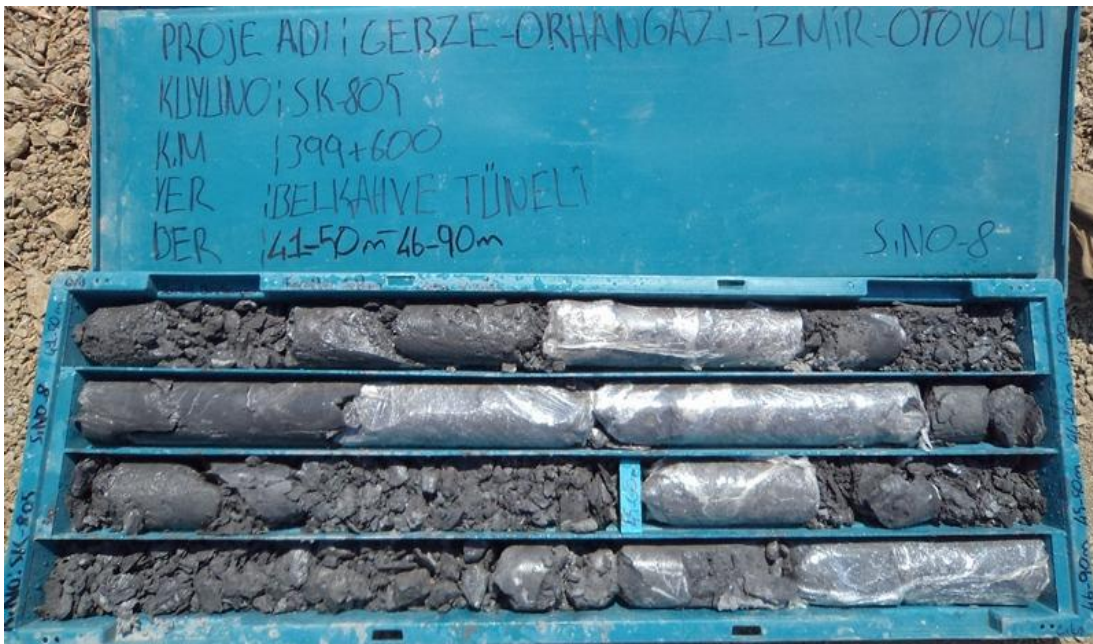 PROJE ADI : GEBZE-ORHANGAZİ-İZMİR-OTOYOLU
KUYUNO : SK-805
K.M : 399+600
YER : BELKAHVE TÜNELİ
DER : 41-50m-46-90m
S.NO-8
S.NO-8
SK-805
46-90m